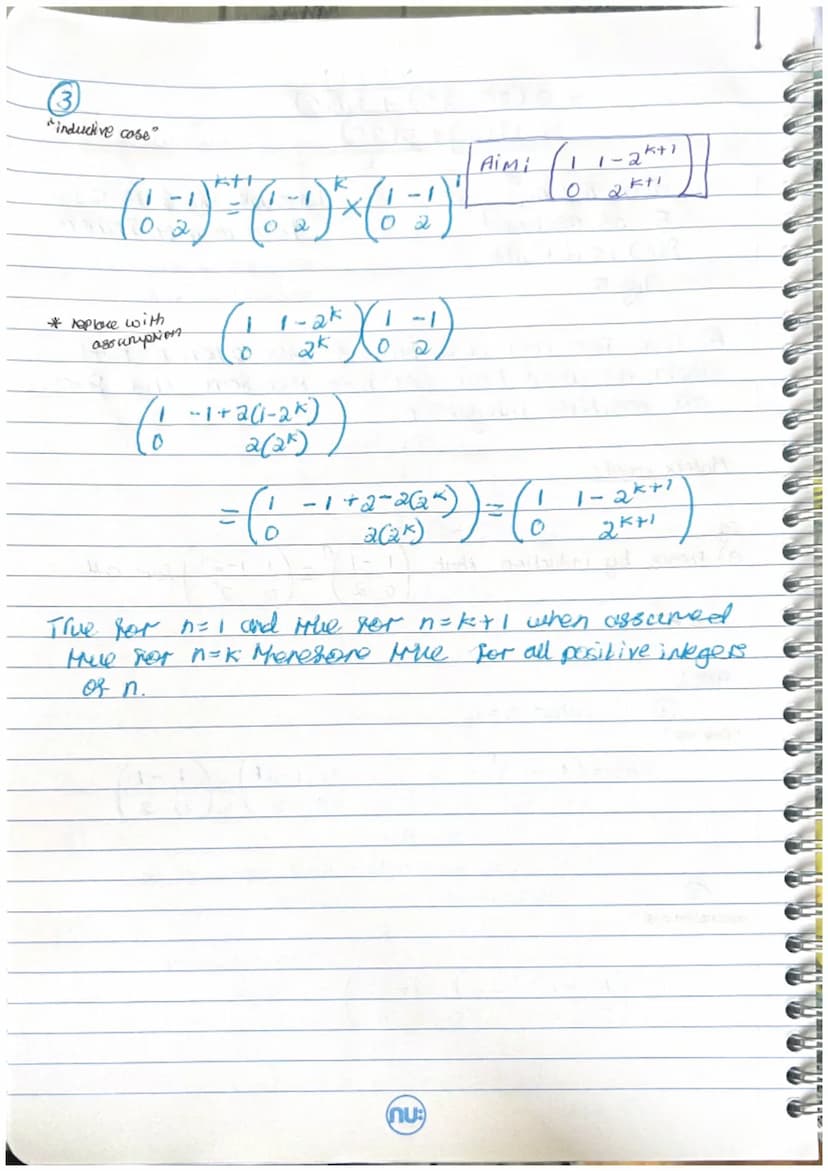 ③
"inductive case"
Aim: (1 1-2^{k+1}; 0 2^{k+1})
(1 -1; 0 2)^{k+1} = (1 -1; 0 2)^k × (1 -1; 0 2)^1
* replace with assumption (1 1-2^k; 0 2^k)(1 -1; 0 2)
(1 -1+2(1-2^k); 0 2(2^k))
= (1 -1+2-2(2^k); 0 2(2^k)) = (1 1-2^{k+1}; 0 2^{k+1})
True for n=1 and true for n=k+1 when assumed
true for n=k therefore true for all positive integers
of n.
nu: